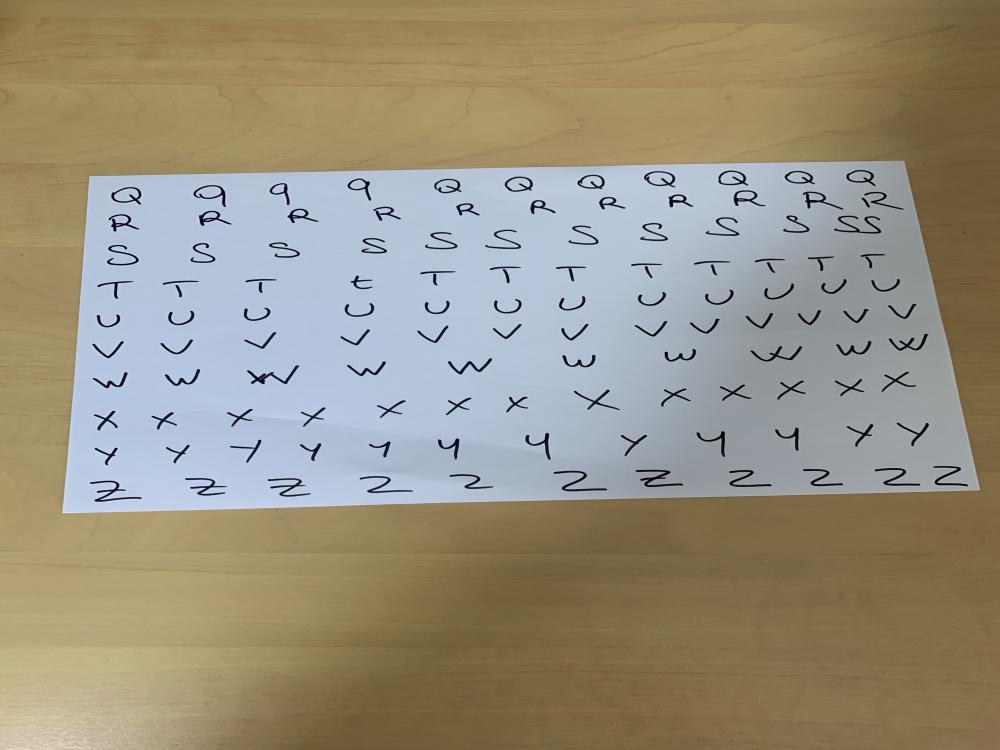 Q q q q Q Q Q Q Q Q Q
R R R R R R R R R R R
S S S S S S S S S S SS
T T T t T T T T T T T T
U U U U U U U U U U U U
V V V V V V V V V V V V
W W W W W W W W W W
X X X X X X X X X X X X
Y Y Y Y Y Y Y Y Y Y Y Y
Z Z Z Z Z Z Z Z Z Z Z